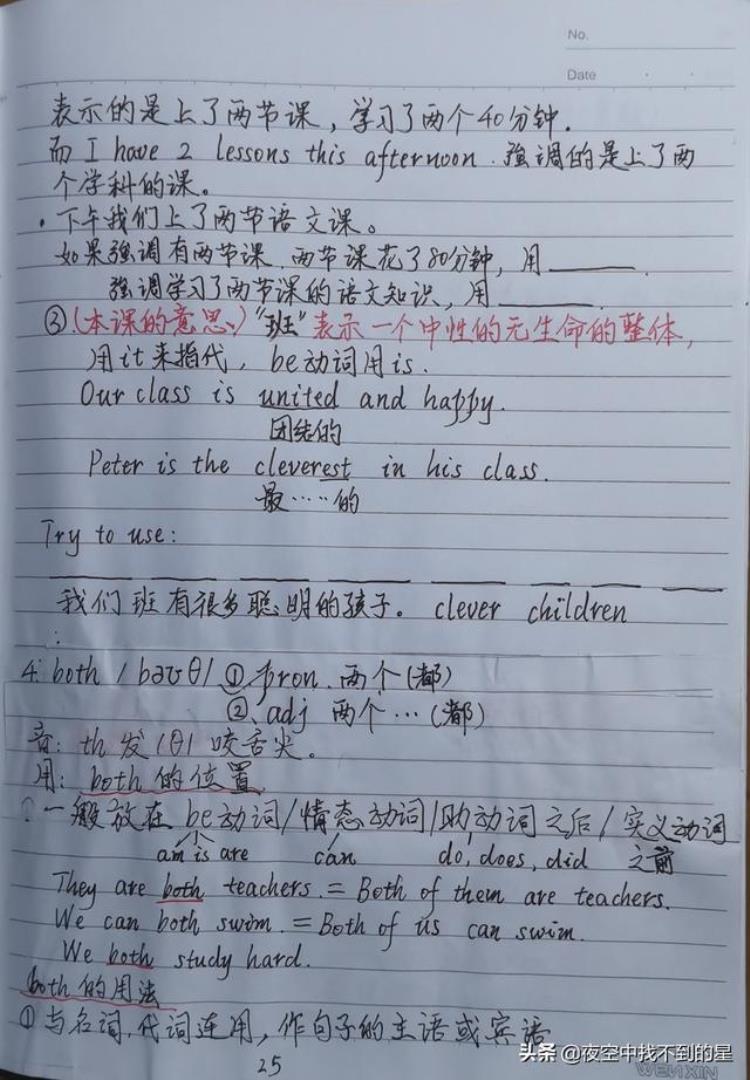 No.
Date
表示的是上了两节课，学习了两个40分钟.
而 I have 2 lessons this afternoon. 强调的是上了两
个学科的课。
·下午我们上了两节语文课。
如果强调有两节课.两节课花了80分钟，用______.
强调学习了两节课的语文知识，用______.
③.(本课的意思:)"班"表示一个中性的无生命的整体,
用it来指代，be动词用is.
Our class is united and happy.
团结的
Peter is the cleverest in his class.
最……的
Try to use:
____ ____ ____ ____ ____ ____ ____
我们班有很多聪明的孩子。 clever children
4. both /bəʊθ/ ①.pron. 两个(都)
②.adj 两个…(都)
音: th 发/θ/ 咬舌尖。
用: both的位置
一般放在be动词/情态动词/助动词之后/实义动词
am is are can do, does, did 之前
They are both teachers. = Both of them are teachers.
We can both swim. = Both of us can swim.
We both study hard.
both的用法
①与名词.代词连用，作句子的主语或宾语
25
头条 @夜空中找不到的星
WENXIN